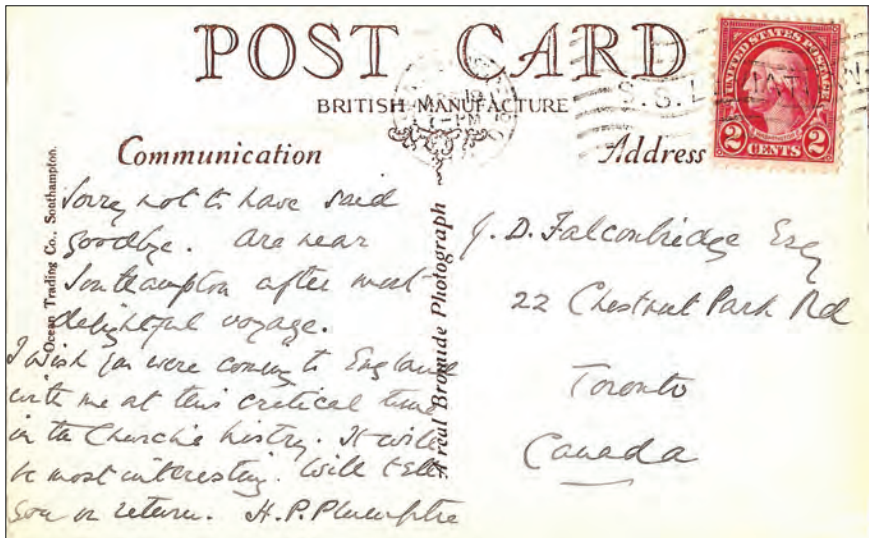 POST CARD
BRITISH MANUFACTURE
Communication
Address
Ocean Trading Co., Southampton.
A real Bromide Photograph
UNITED STATES POSTAGE
2 CENTS 2
S.S. LEVIATHAN
PM
Sorry not to have said
goodbye. Are near
Southampton after most
delightful voyage.
I wish you were coming to England
with me at this critical time
in the Church's history. It will
be most interesting. Will tell
you on return. H.P. Plumptre
J. D. Falconbridge Esq
22 Chestnut Park Rd
Toronto
Canada